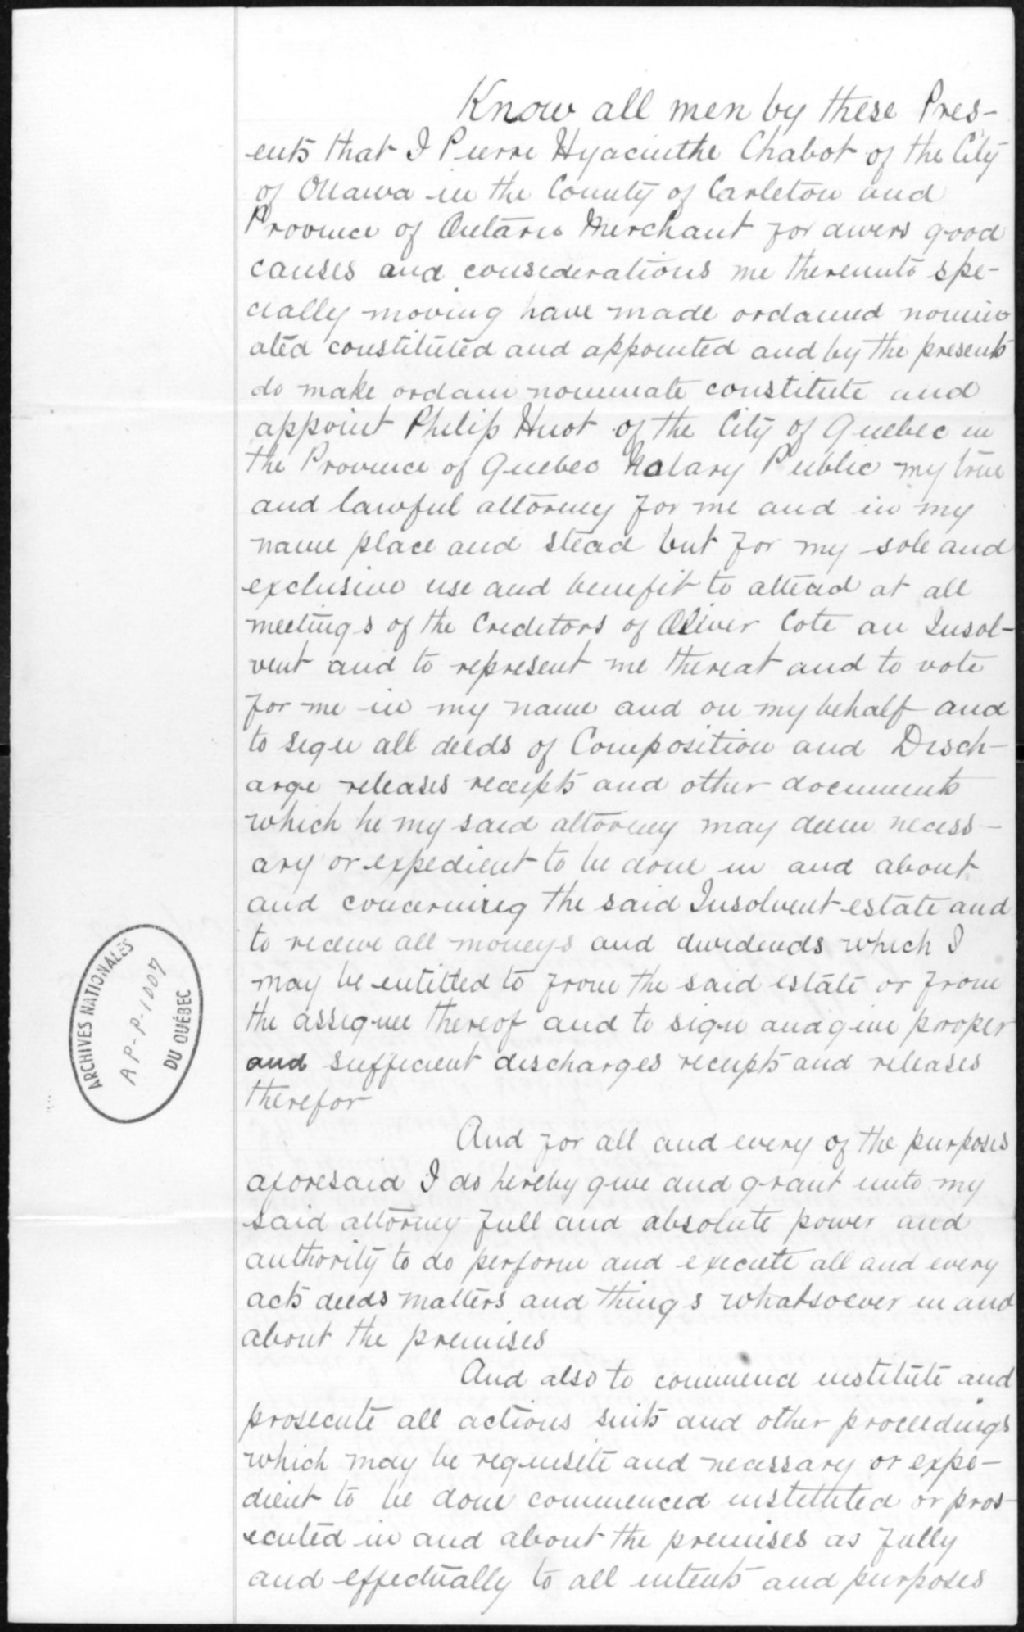 Know all men by these Pres-
ents that I Pierre Hyacinthe Chabot of the City
of Ottawa in the County of Carleton and
Province of Ontario Merchant for divers good
causes and considerations me thereunto spe-
cially moving have made ordained nomin
ated constituted and appointed and by the presents
do make ordain nominate constitute and
appoint Philip Huot of the City of Quebec in
the Province of Quebec Notary Public my true
and lawful attorney for me and in my
name place and stead but for my sole and
exclusive use and benefit to attend at all
meetings of the Creditors of Oliver Cote an Insol-
vent and to represent me thereat and to vote
for me in my name and on my behalf and
to sign all deeds of Composition and Disch-
arge releases receipts and other documents
which he my said attorney may deem necess-
ary or expedient to be done in and about
and concerning the said Insolvent estate and
to receive all moneys and dividends which I
may be entitled to from the said estate or from
the assignee thereof and to sign and give proper
and sufficient discharges receipts and releases
therefor
And for all and every of the purposes
aforesaid I do hereby give and grant unto my
said attorney full and absolute power and
authority to do perform and execute all and every
acts deeds matters and things whatsoever in and
about the premises
And also to commence institute and
prosecute all actions suits and other proceedings
which may be requisite and necessary or expe-
dient to be done commenced instituted or pros-
ecuted in and about the premises as fully
and effectually to all intents and purposes
ARCHIVES NATIONALES
AP-P-1007
DU QUÉBEC